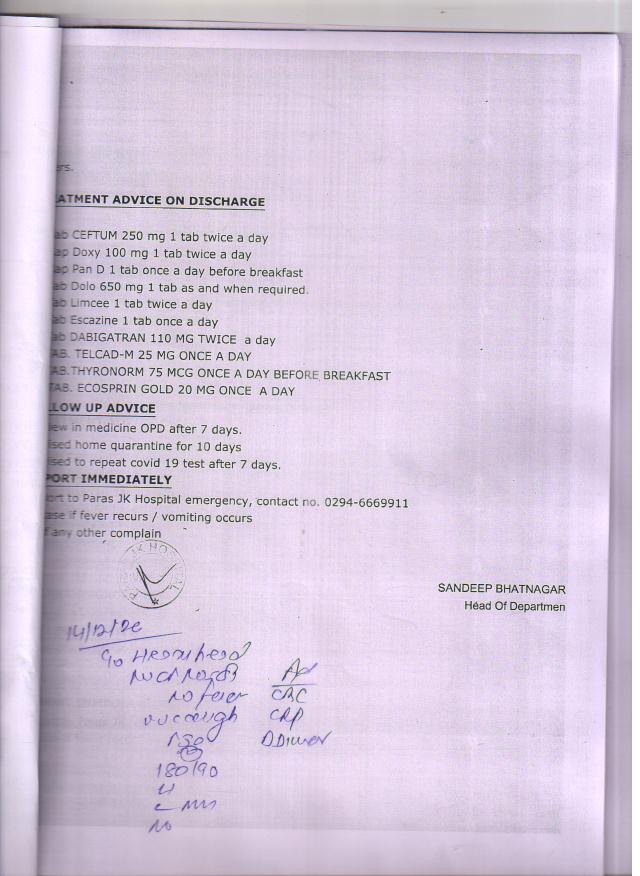 ers.
EATMENT ADVICE ON DISCHARGE
ab CEFTUM 250 mg 1 tab twice a day
ap Doxy 100 mg 1 tab twice a day
ap Pan D 1 tab once a day before breakfast
ab Dolo 650 mg 1 tab as and when required.
ab Limcee 1 tab twice a day
ab Escazine 1 tab once a day
ab DABIGATRAN 110 MG TWICE a day
AB. TELCAD-M 25 MG ONCE A DAY
AB.THYRONORM 75 MCG ONCE A DAY BEFORE BREAKFAST
TAB. ECOSPRIN GOLD 20 MG ONCE A DAY
LLOW UP ADVICE
iew in medicine OPD after 7 days.
ised home quarantine for 10 days
ised to repeat covid 19 test after 7 days.
PORT IMMEDIATELY
ort to Paras JK Hospital emergency, contact no. 0294-6669911
ase if fever recurs / vomiting occurs
f any other complain
JK HOSPITAL
SANDEEP BHATNAGAR
Head Of Departmen
14/12/20
no fever CBC
cough CRP
DDimer
180/90